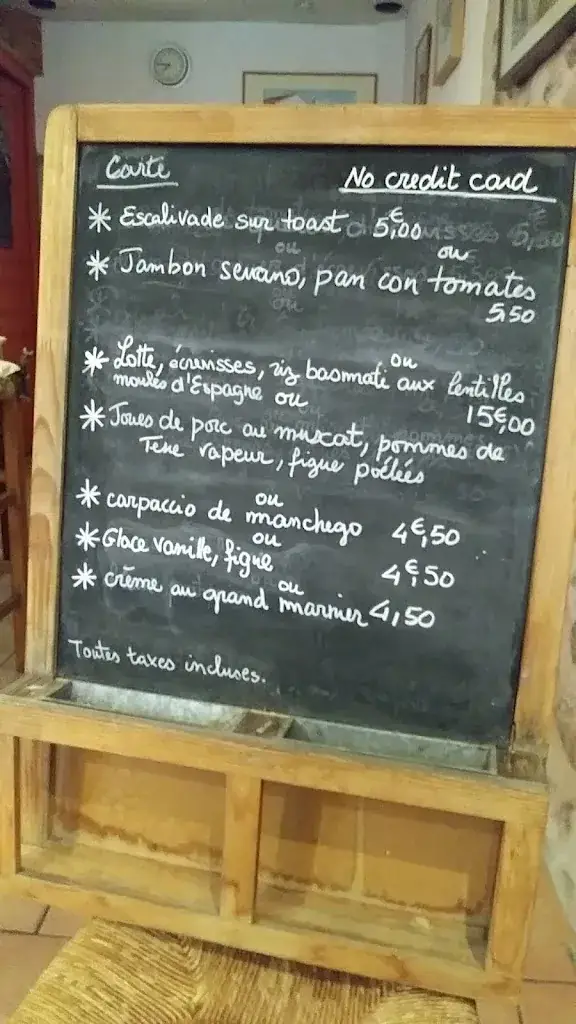 Carte
No credit card
* Escalivade sur toast 5,00€
ou
* Jambon serrano, pan con tomates
5,50
ou
* Lotte, écrevisses, riz basmati aux lentilles
moules d'Espagne ou 15€,00
* Joues de porc au muscat, pommes de
Terre vapeur, figue poêlées
ou
* carpaccio de manchego 4€,50
ou
* Glace vanille, figue 4€,50
ou
* crème au grand marnier 4,50
Toutes taxes incluses.